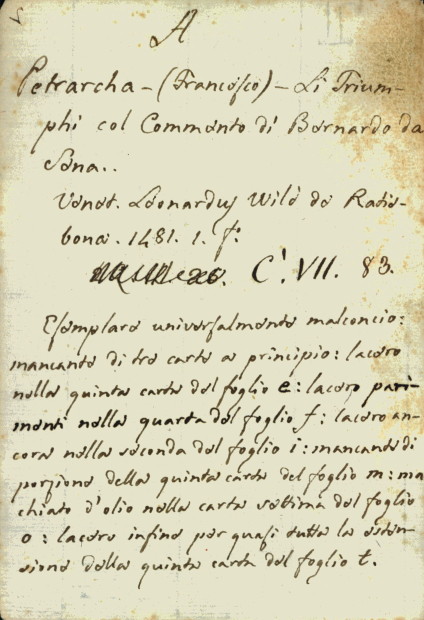 A
Petrarcha - (Francesco) - Li Trium-
phi col Commento di Bernardo da
Sena..
Venet. Leonardus Wild de Ratis-
bona. 1481. 1. f.º
C. VII. 83.
Esemplare universalmente malconcio:
mancante di tre carte a principio: lacero
nella quinta carta del foglio e: lacero pari
menti nella quarta del foglio f: lacero an-
cora nella seconda del foglio i: mancante di
porzione della quinta carta del foglio m: ma
chiato d'olio nella carta settima del foglio
o: lacero infine per quasi tutta la esten-
sione della quinta carta del foglio t.